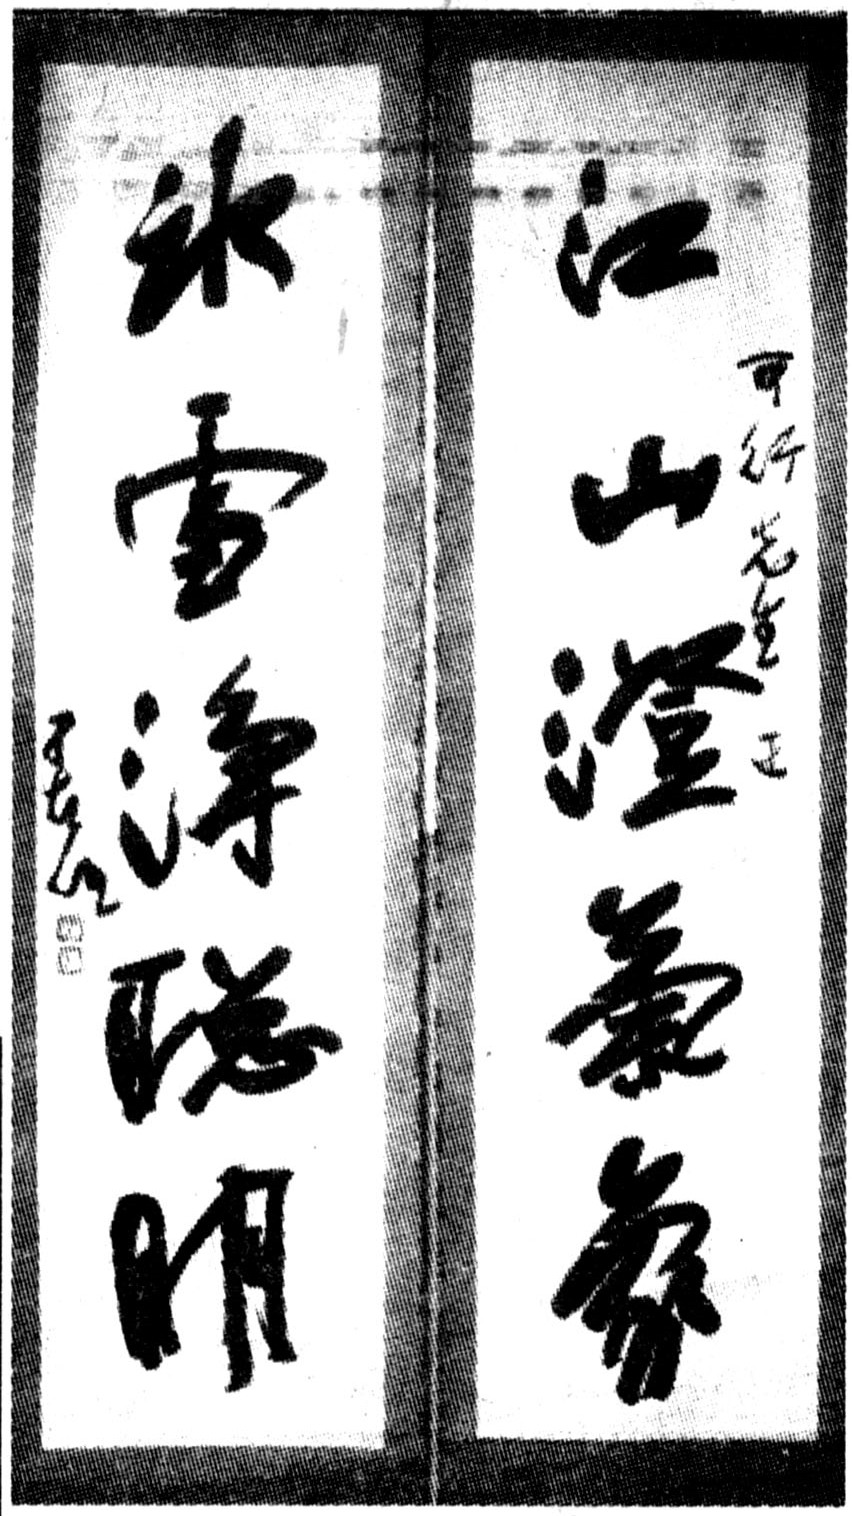 江山澄氣象
可行先生正
冰雪淨聰明